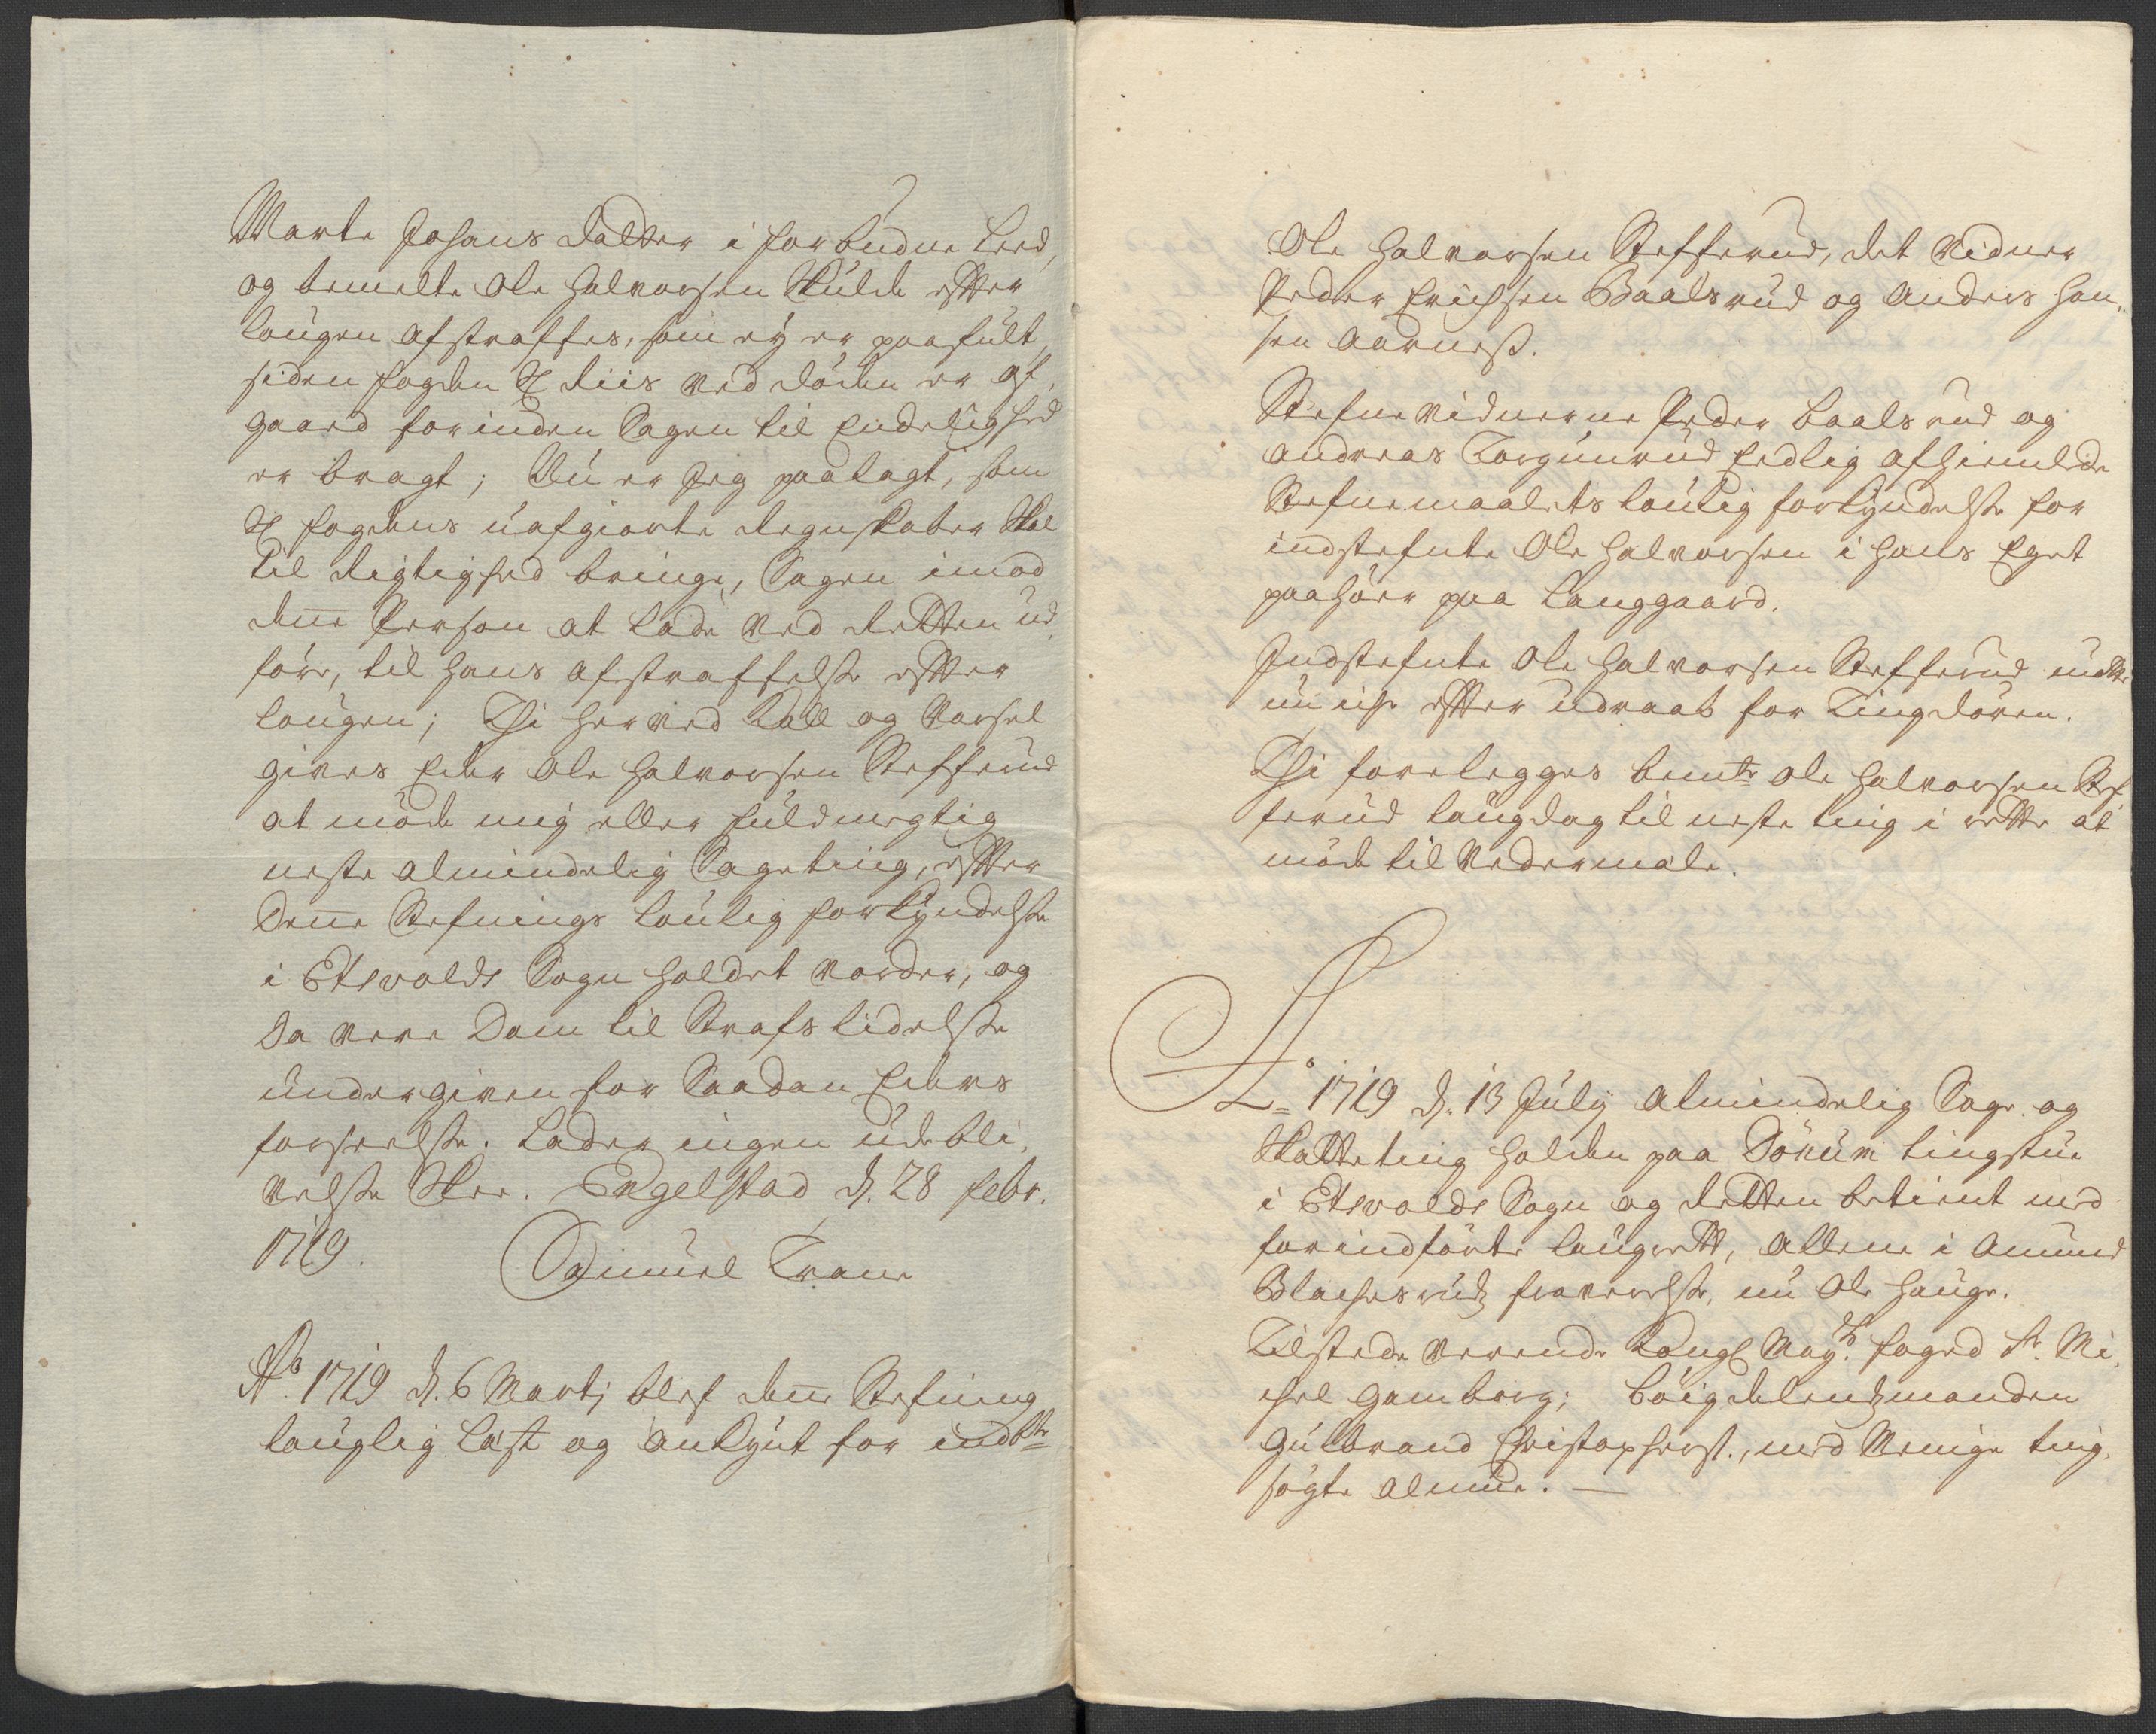 Marte Johans datter i forbudne Leed,
og bemelte Ole Halvorsen Skulde efter
lougen afstraffes, som ey er paafult,
siden fogden Sl Riis ved döden er af,
gaaed forinden Sagen til Endelighed
er bragt; Nu er Jeg paalagt, som
Sl fogdens uafgiorte Regnskaber Skal
til Rigtighed bringe, Sagen imod
denne Person at lade ved Retten ud
före, til hans afstraffelse efter
lougen; Thi herved Kald og Varsel
gives Eder Ole Halvorsen Stefferud
at möde mig eller fuldmegtig
neste almindelig Sageting, efter
Denne Stefnings loulig forkyndelse
i Edsvolds Sogn holdet vorder, og
da være Dom til Strafs lidelse
undergiven for Saadan Eders
forseelse. Lader ingen udebli,
velse Skee. Engelstad d. 28 febr.
1719. Samuel Trane
Ao. 1719 d. 6 Martj blef denne Stefning
louglig læst og ankynt for indbte
Ole Halvorsen Stefferud, det vidner
Peder Erichsen Baalsrud og Anders Han,,
sen Aarness.
Stefnevidnerne Peder Baalsrud og
Andreas Torgunrud Eedlig afhiemlede
Stefnemaalets loulig forkyndelse for
indstefnte Ole Halvorsen i hans Eget
paahör paa Langgaard.
Indstefnte Ole Halvorsen Stefferud mötte
nu iche efter udraab for Tingdören.
Thi forelegges bemte Ole Halvorsen Stef
ferud laugdag til neste ting i rette at
möde til vedermæle.
Ao 1719 d. 13 July almindelig Sage og
Skatteting holden paa Dönum tingstue
i Edsvolds Sogn og Retten betient med
forindförte laugrett, allene i Amund
Blachesruds fraværelse, nu Ole Hauge.
Tilstede verende Kongl May.ts foged Sr. Mi,
chel Gamborg; böigdelendsmanden
Gulbrand Christophers., med Menige ting,
sögte almue. —